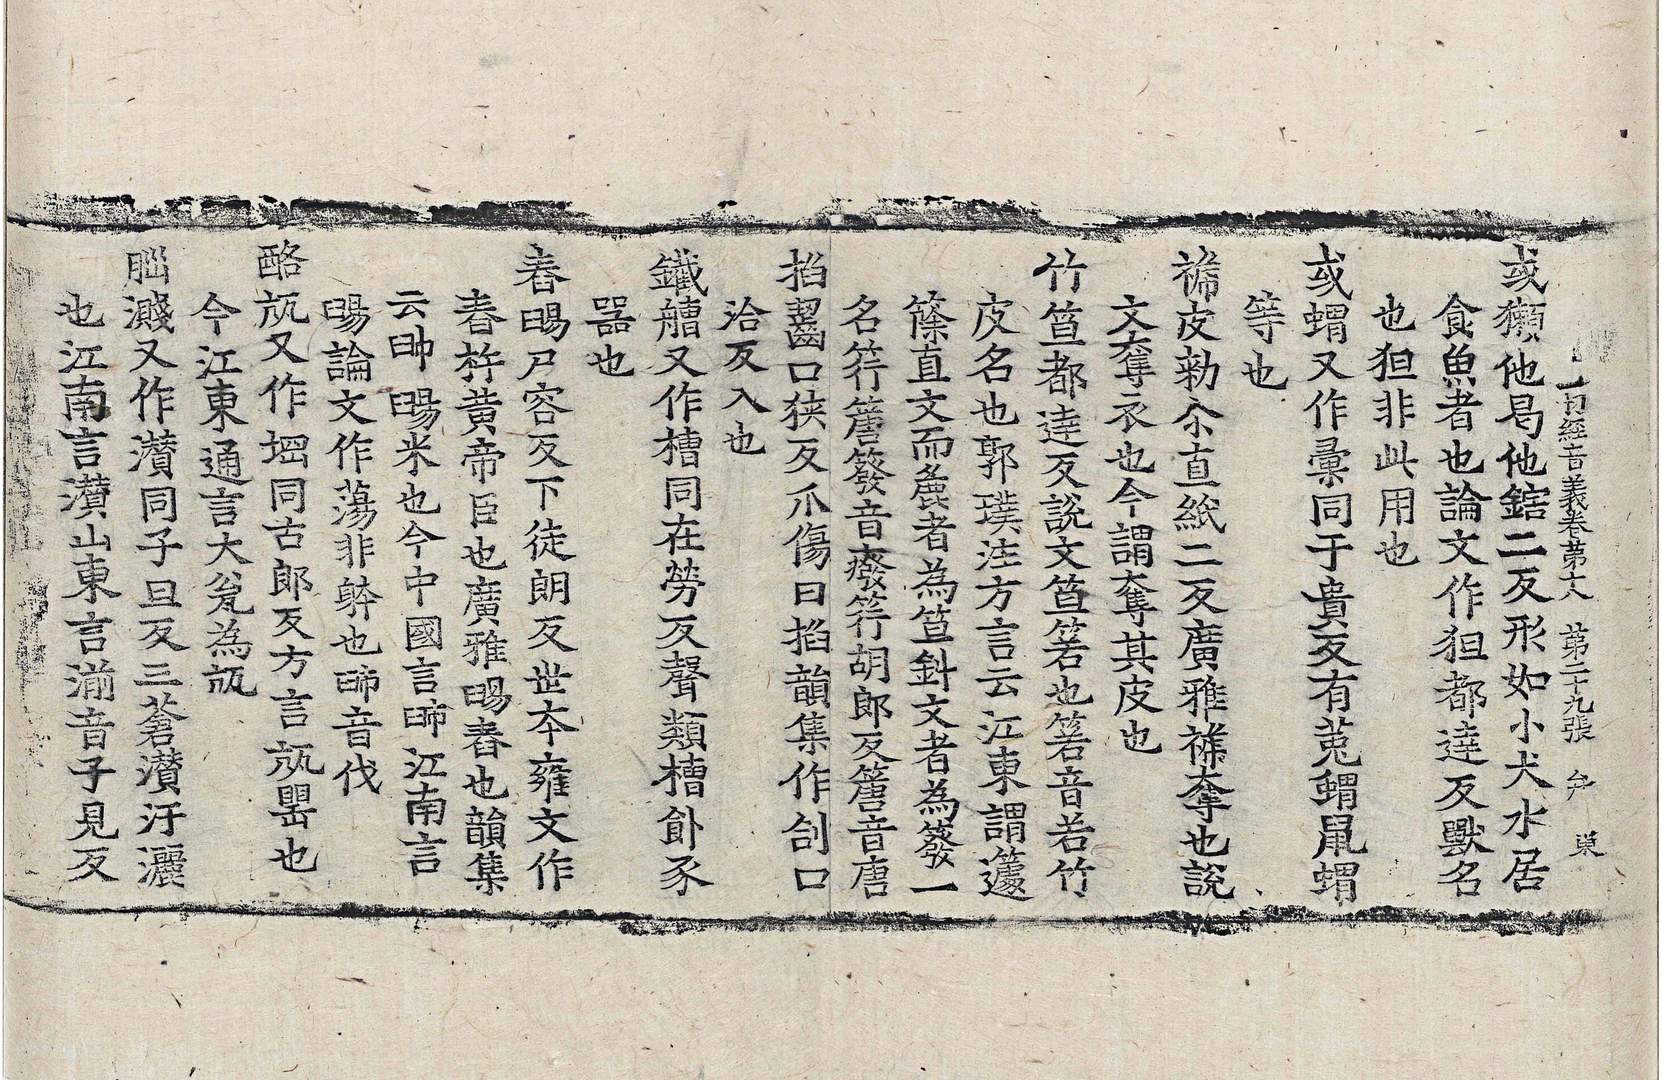 一切經音義卷第十八 第二十九張 弁 東
或獺他曷他鎋二反形如小犬水居
食魚者也論文作狚都達反獸名
也狚非此用也
或蝟又作彙同于貴反有菟蝟鼠蝟
等也
褫皮勑尒直紙二反廣雅褫奪也說
文奪衣也今謂奪其皮也
竹笪都達反說文笪箬也箬音若竹
皮名也郭璞注方言云江東謂籧
篨直文而麁者為笪斜文者為䉬一
名筕篖䉬音癈筕胡郎反篖音唐
掐齧口狹反爪傷曰掐韻集作㓣口
洽反入也
鐵艚又作槽同在勞反聲類槽飤豕
器也
舂暘尸容反下徒朗反世本雍文作
舂杵黃帝臣也廣雅暘舂也韻集
云䀟暘米也今中國言䀟江南言
暘論文作蕩非躰也䀟音伐
酪瓨又作堈同古郎反方言瓨甖也
今江東通言大瓮為瓨
腦濺又作灒同子旦反三蒼灒汙灑
也江南言灒山東言湔音子見反